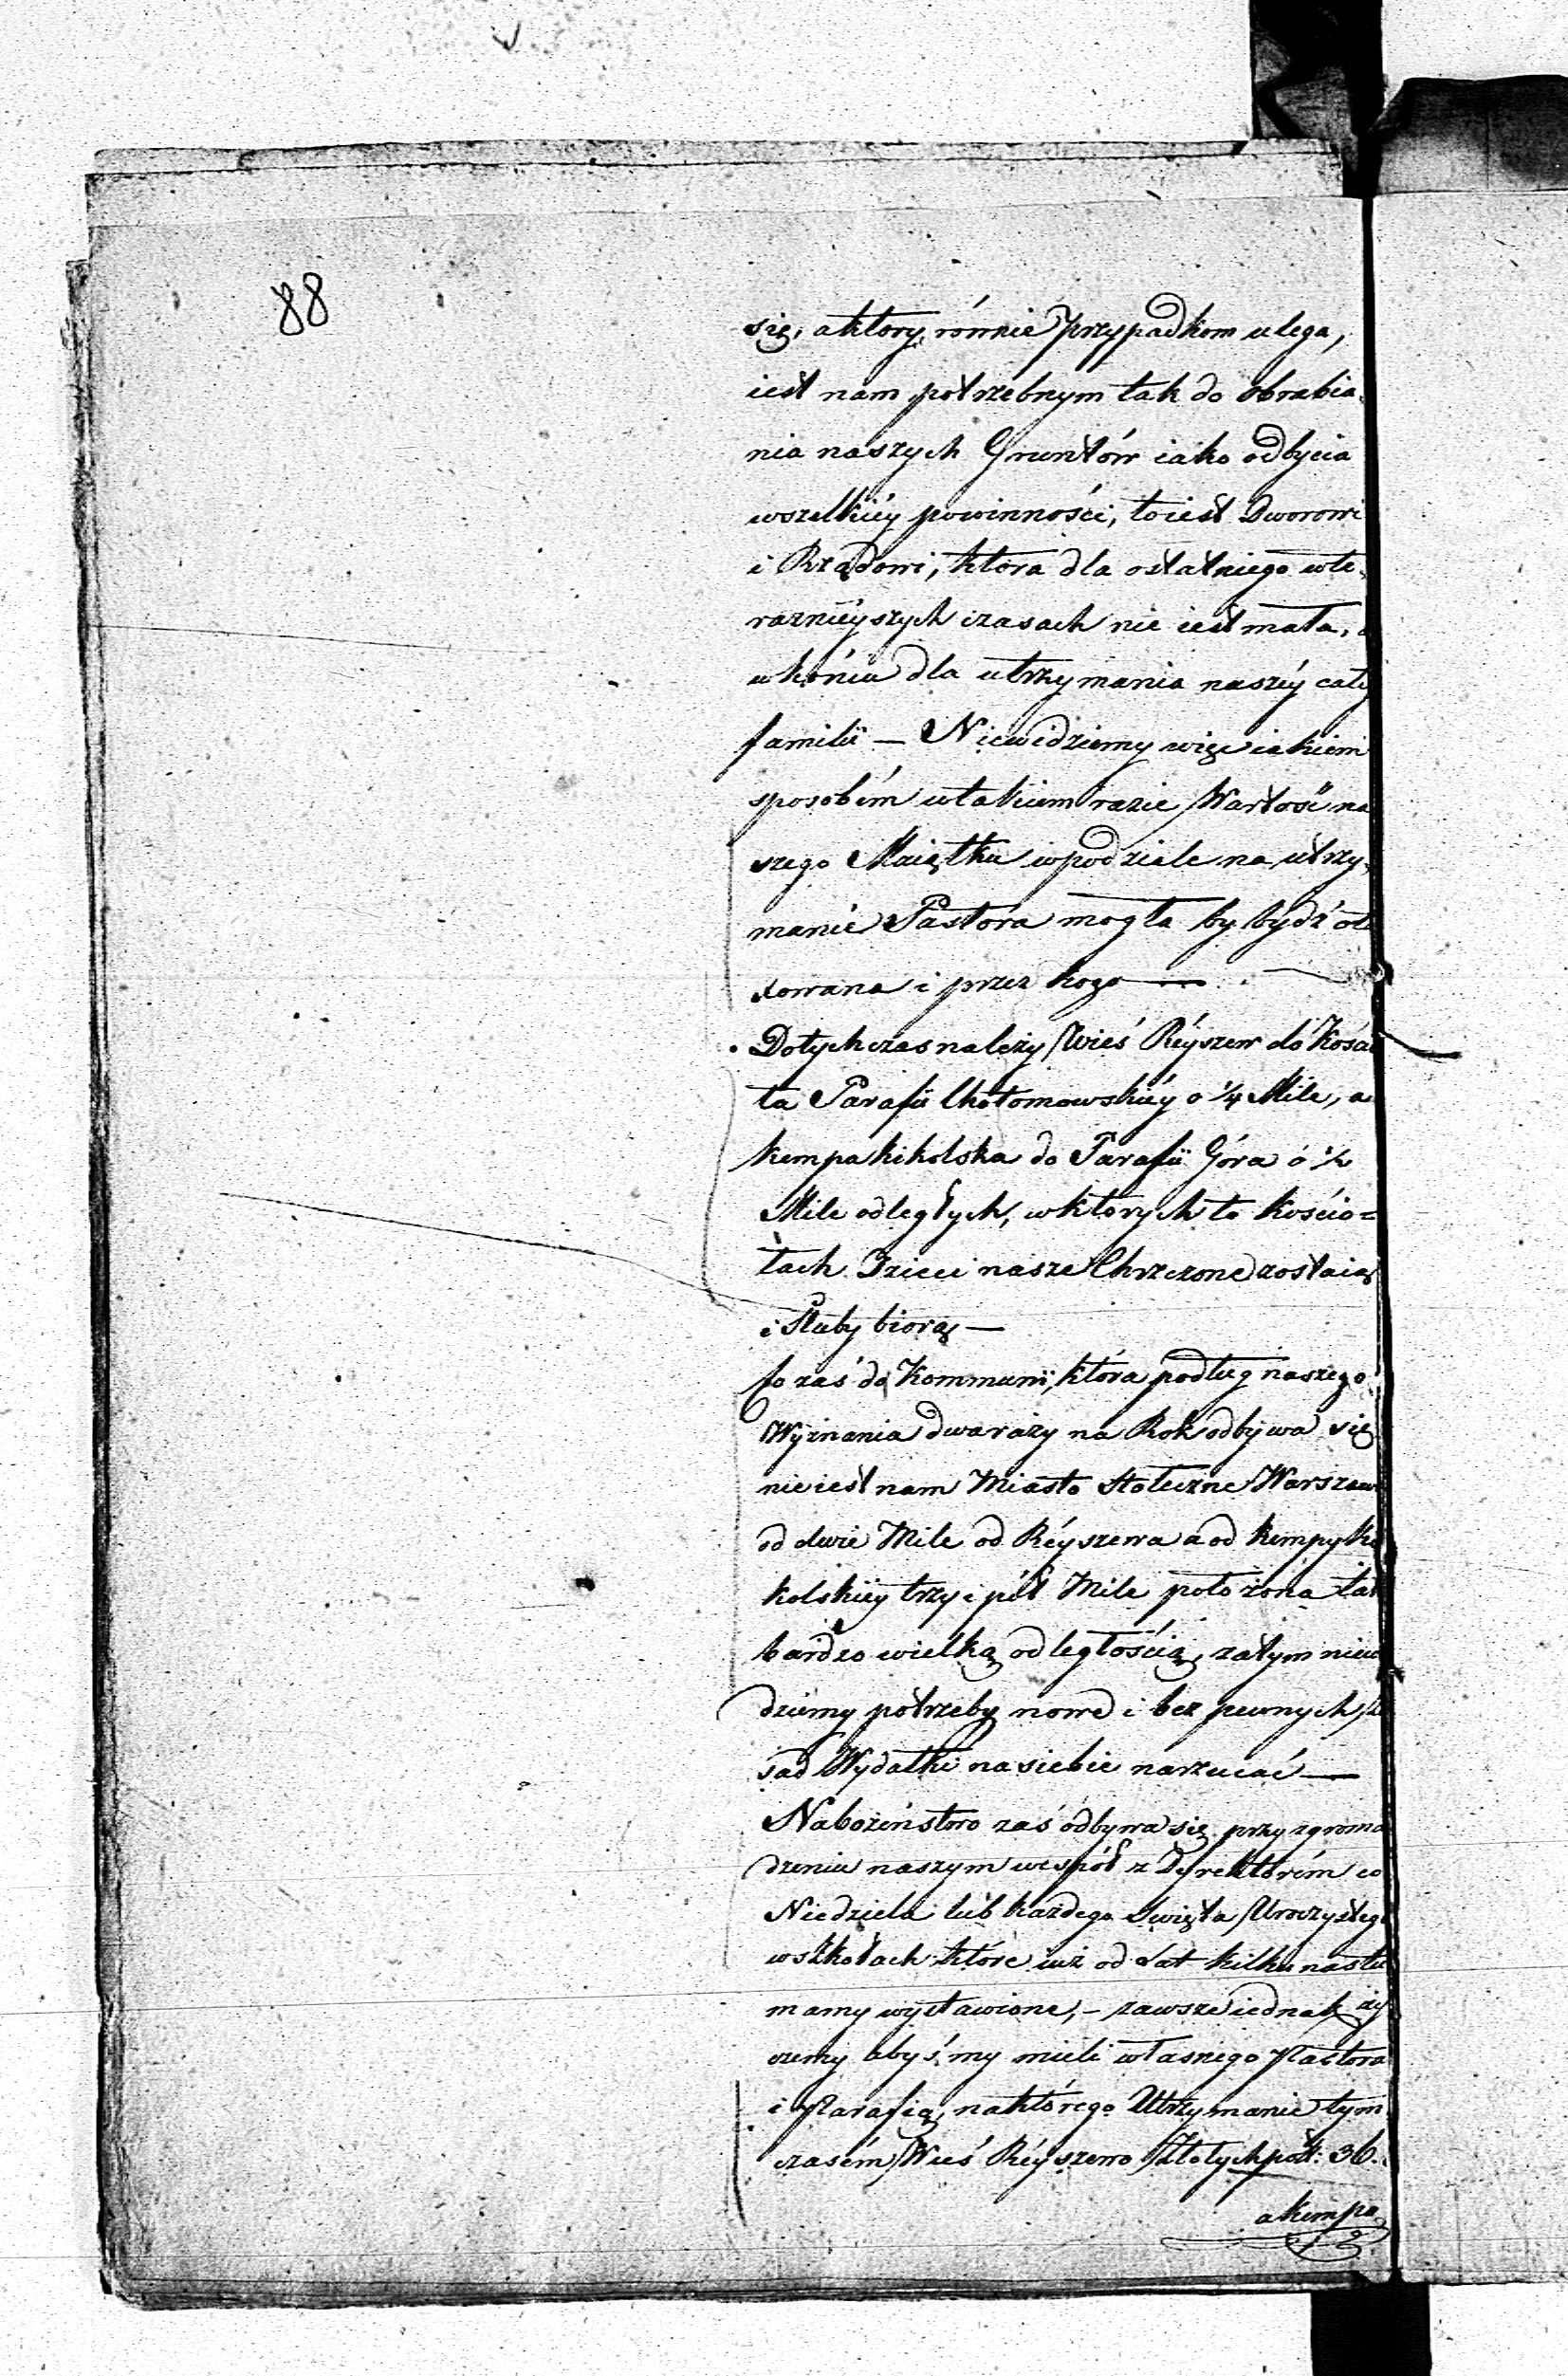 88
się, a ktory, równie przypadkom ulega,
iest nam potrzebnym tak do obrabia-
nia naszych Gruntów iako odbycia
wszelkiéy powinności, to iest Dworowi
i Rządowi, ktora dla ostatniego wte-
raznieyszych czasach nie iest mała,
w końcu dla utrzymania naszéy cały
familii — Niewidziemy więc iakiem
sposobém w takiem razie Wartość na
szego Maiątku w podziale na utrzy-
manie Pastora mogła by bydź
sowana i przez kogo —
Dotychczas należy Wieś Réyszew do Kości
ła Parafii Chotomowskiéy o ¼ Mile, a
Kempa Kikolska do Parafii Góra o ½
Mile odległych, w ktorych to Kościo=
łach Dzieci nasze Chrzczone zostaią
i Śluby biorą —
Co zaś do Kommunii, która podług naszego
Wyznania dwa razy na Rok odbywa się
nie iest nam Miasto Stołeczne Warszaw
od dwie Mile od Réyszewa a od Kempy Ki
kolskiéy trzy i pół Mile położona tak
bardzo wielką odległością, zatym niewi
dziemy potrzeby nowe i bez pewnych za
sad Wydatki na siebie narzucać —
Nabożeństwo zaś odbywa się przy zgroma
dzeniu naszym wespół z Dyrektorém co
Niedziela lub każdego Święta Uroczystego
w szkołach które iuż od Lat kilkunastu
mamy wystawione, — zawsze iednak ży
czemy abyśmy mieli własnego Pastora
i Parafią, na którego Utrzymanie tym
czasém Wieś Réyszewo Złotych pol: 36.
a Kempa